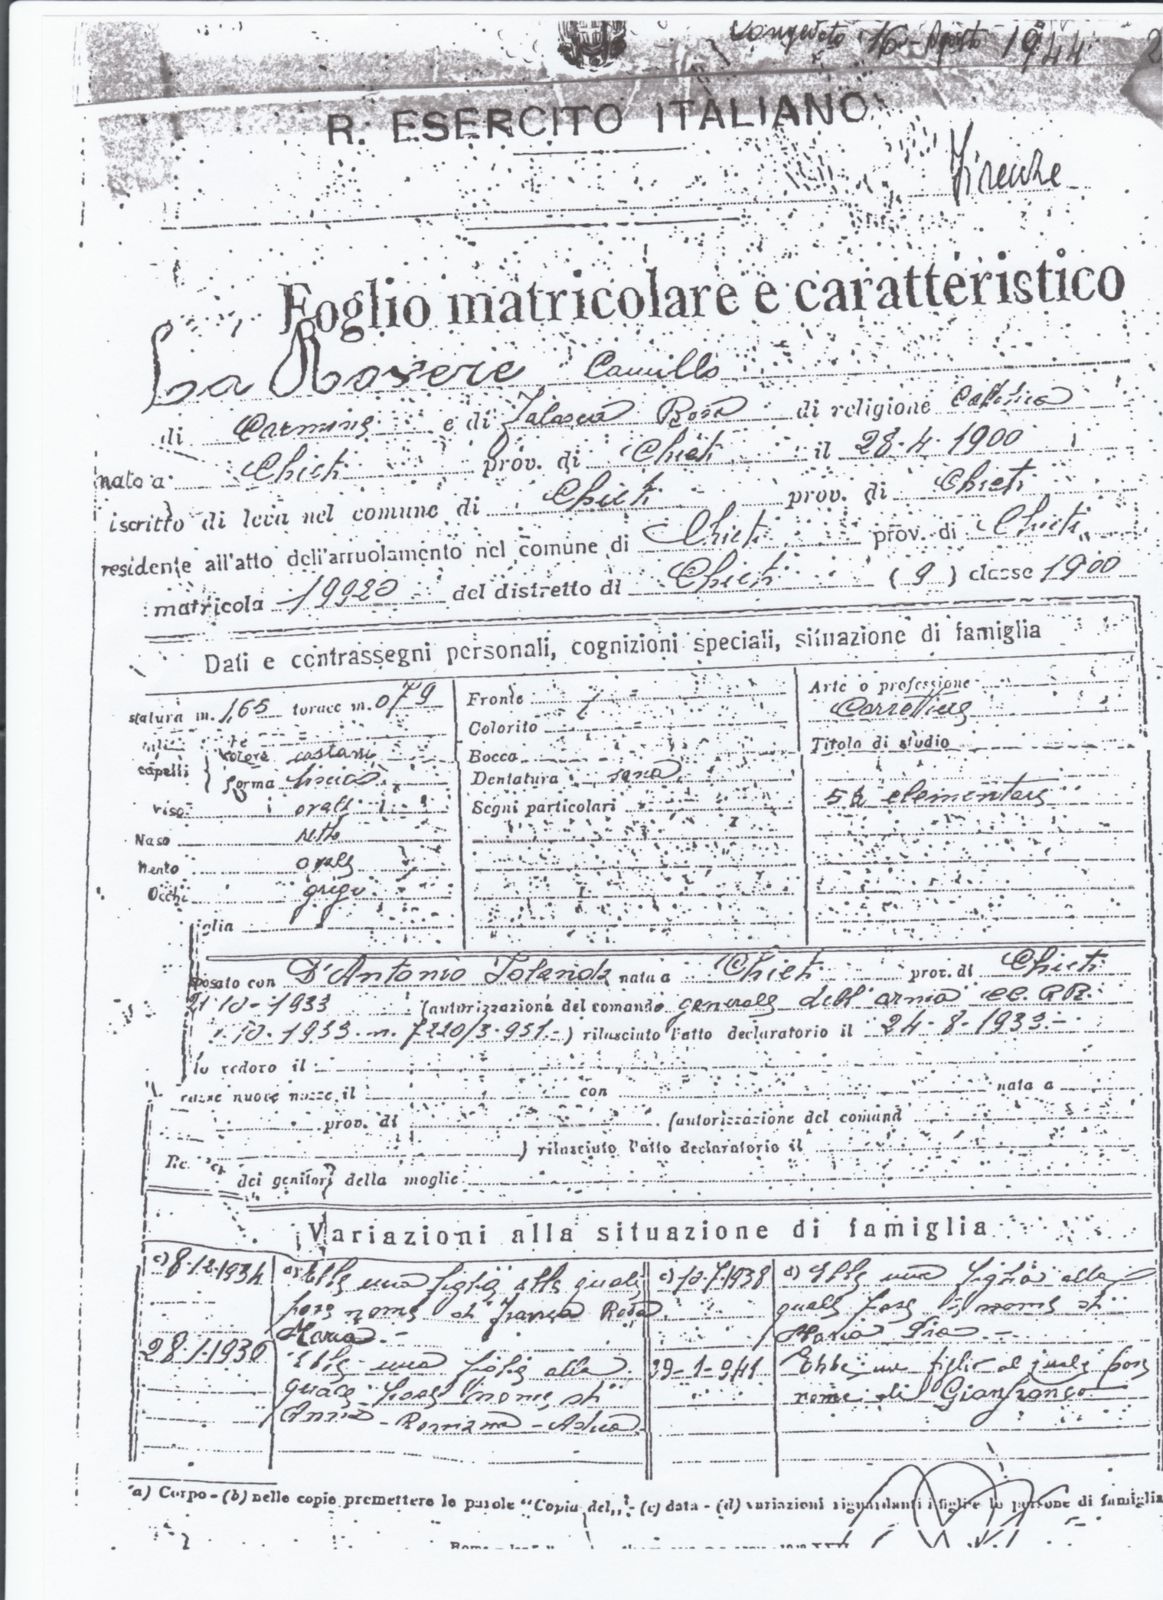 Congedato 16 - Agosto 1944
R. ESERCITO ITALIANO
Firenze
Foglio matricolare e caratteristico
La Rovere Camillo
di Carmine e di Rosa di religione Cattolica
nato a Chieti prov. di Chieti il 28-4-1900
iscritto di leva nel comune di Chieti prov. di Chieti
residente all'atto dell'arruolamento nel comune di Chieti prov. di Chieti
matricola 19920 del distretto di Chieti (9) classe 1900
Dati e contrassegni personali, cognizioni speciali, situazione di famiglia
statura m. 1,65 torace m. 079
capelli
colore castani
forma lisci
viso ovale
Naso retto
Mento ovale
Occhi grigi
iglia
Fronte
Colorito
Bocca
Dentatura sana
Segni particolari
Arte o professione
Titolo di studio
5a elementare
sposato con D'Antonio Iolanda nata a Chieti prov. di Chieti
10-1933 (autorizzazione del comando generale dell'arma CC. RR.
10-1933 n. 7220/3-951-) rilasciato l'atto declaratorio il 24-8-1933-
to vedovo il
nuove nozze il con nata a
prov. di (autorizzazione del comand
) rilasciuto l'atto declaratorio il
dei genitori della moglie
Variazioni alla situazione di famiglia
c) 8-12-1934 d) Ebbe una figlia alla quale
pose nome di Franca Rosa
Maria.-
28-1-1936 Ebbe una figlia alla
quale pose nome di
Anna - Romana -
c) 10-7-1938 d) Ebbe una figlia alla
quale pose nome di
Maria Pia -
29-1-941 Ebbe un figlio al quale pose
nome di Gianfranco
a) Corpo - (b) nelle copie premettere le parole "Copia del,, - (c) data - (d) variazioni riguardanti i figli e le persone di famiglia